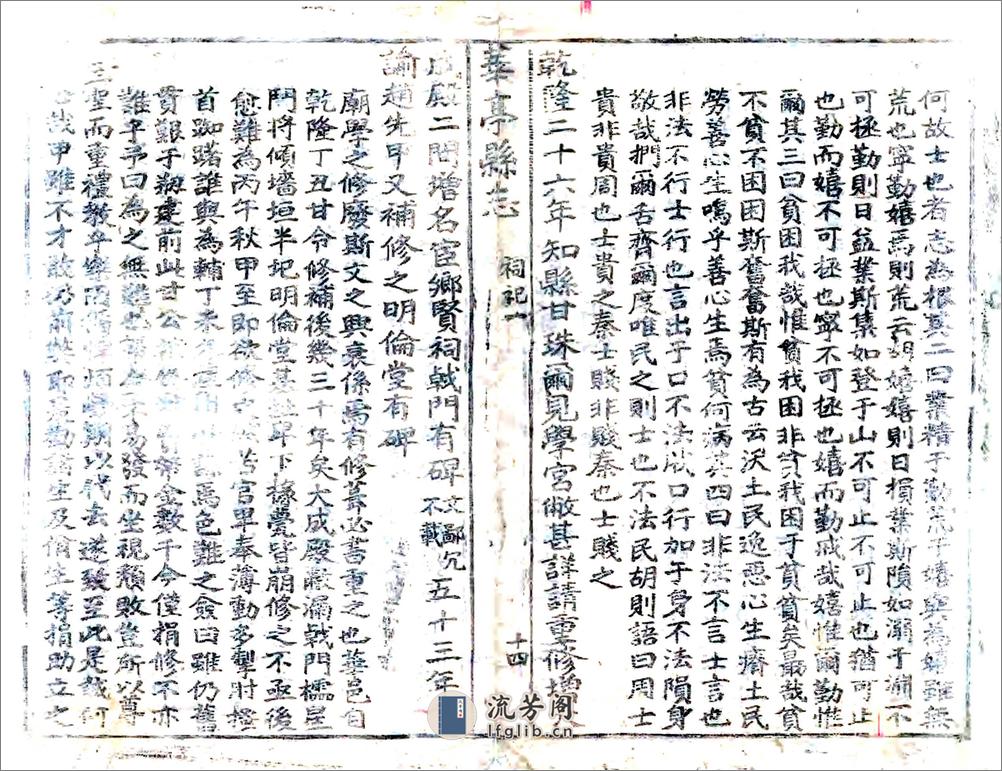 何故士也者志為根其二曰業精于勤荒于嬉與為嬉雖無
荒也寧勤嬉焉則荒云胡嬉嬉則日損業斯隤如溺于淵不
可拯勤則日益業斯集如登于山不可止不可止也猶可止
也勤而嬉不可拯也寧不可拯也嬉而勤戒哉嬉惟爾勤惟
爾其三曰貧困我哉惟貧我困非貧我困于貧貧矣哉貧
不貧不困困斯奮奮斯有為古云沃土民逸惡心生瘠土民
勞善心生嗚乎善心生焉貧何病其四曰非法不言士言也
非法不行士行也言出于口不法戕口行加于身不法隕身
敬哉捫爾舌齊爾度唯民之則士也不法民胡則語曰周士
貴非貴周也士貴之秦士賤非賤秦也士賤之
乾隆二十六年知縣甘珠爾見學宮敝甚詳請重修
華亭縣志
祠祀一
十四
殿二門增名宦鄉賢祠戟門有碑文鄙冗不載五十三年
諭趙先甲又補修之明倫堂有碑
廟學之修廢斯文之興衰係焉有修葺必書重之也華邑自
乾隆丁丑甘令修補後幾三十年矣大成殿滲漏戟門櫺星
門將傾墻垣半圮明倫堂基址卑下椽甍皆崩修之不亟後
愈難為丙午秋甲至即欲修官卑奉薄動多掣肘搔
首踟躇誰與為輔丁未焉色難之僉曰雖仍舊
貫艱于剏建前此甘公金數千今僅捐修不亦
難乎予曰為之無難也不易發而坐視頹敗豈所以尊
聖而重禮教乎以代去遂發至此是哉何
哉甲雖不才敢仍前生及備生等捐助立之
流芳阁
lfglib.cn